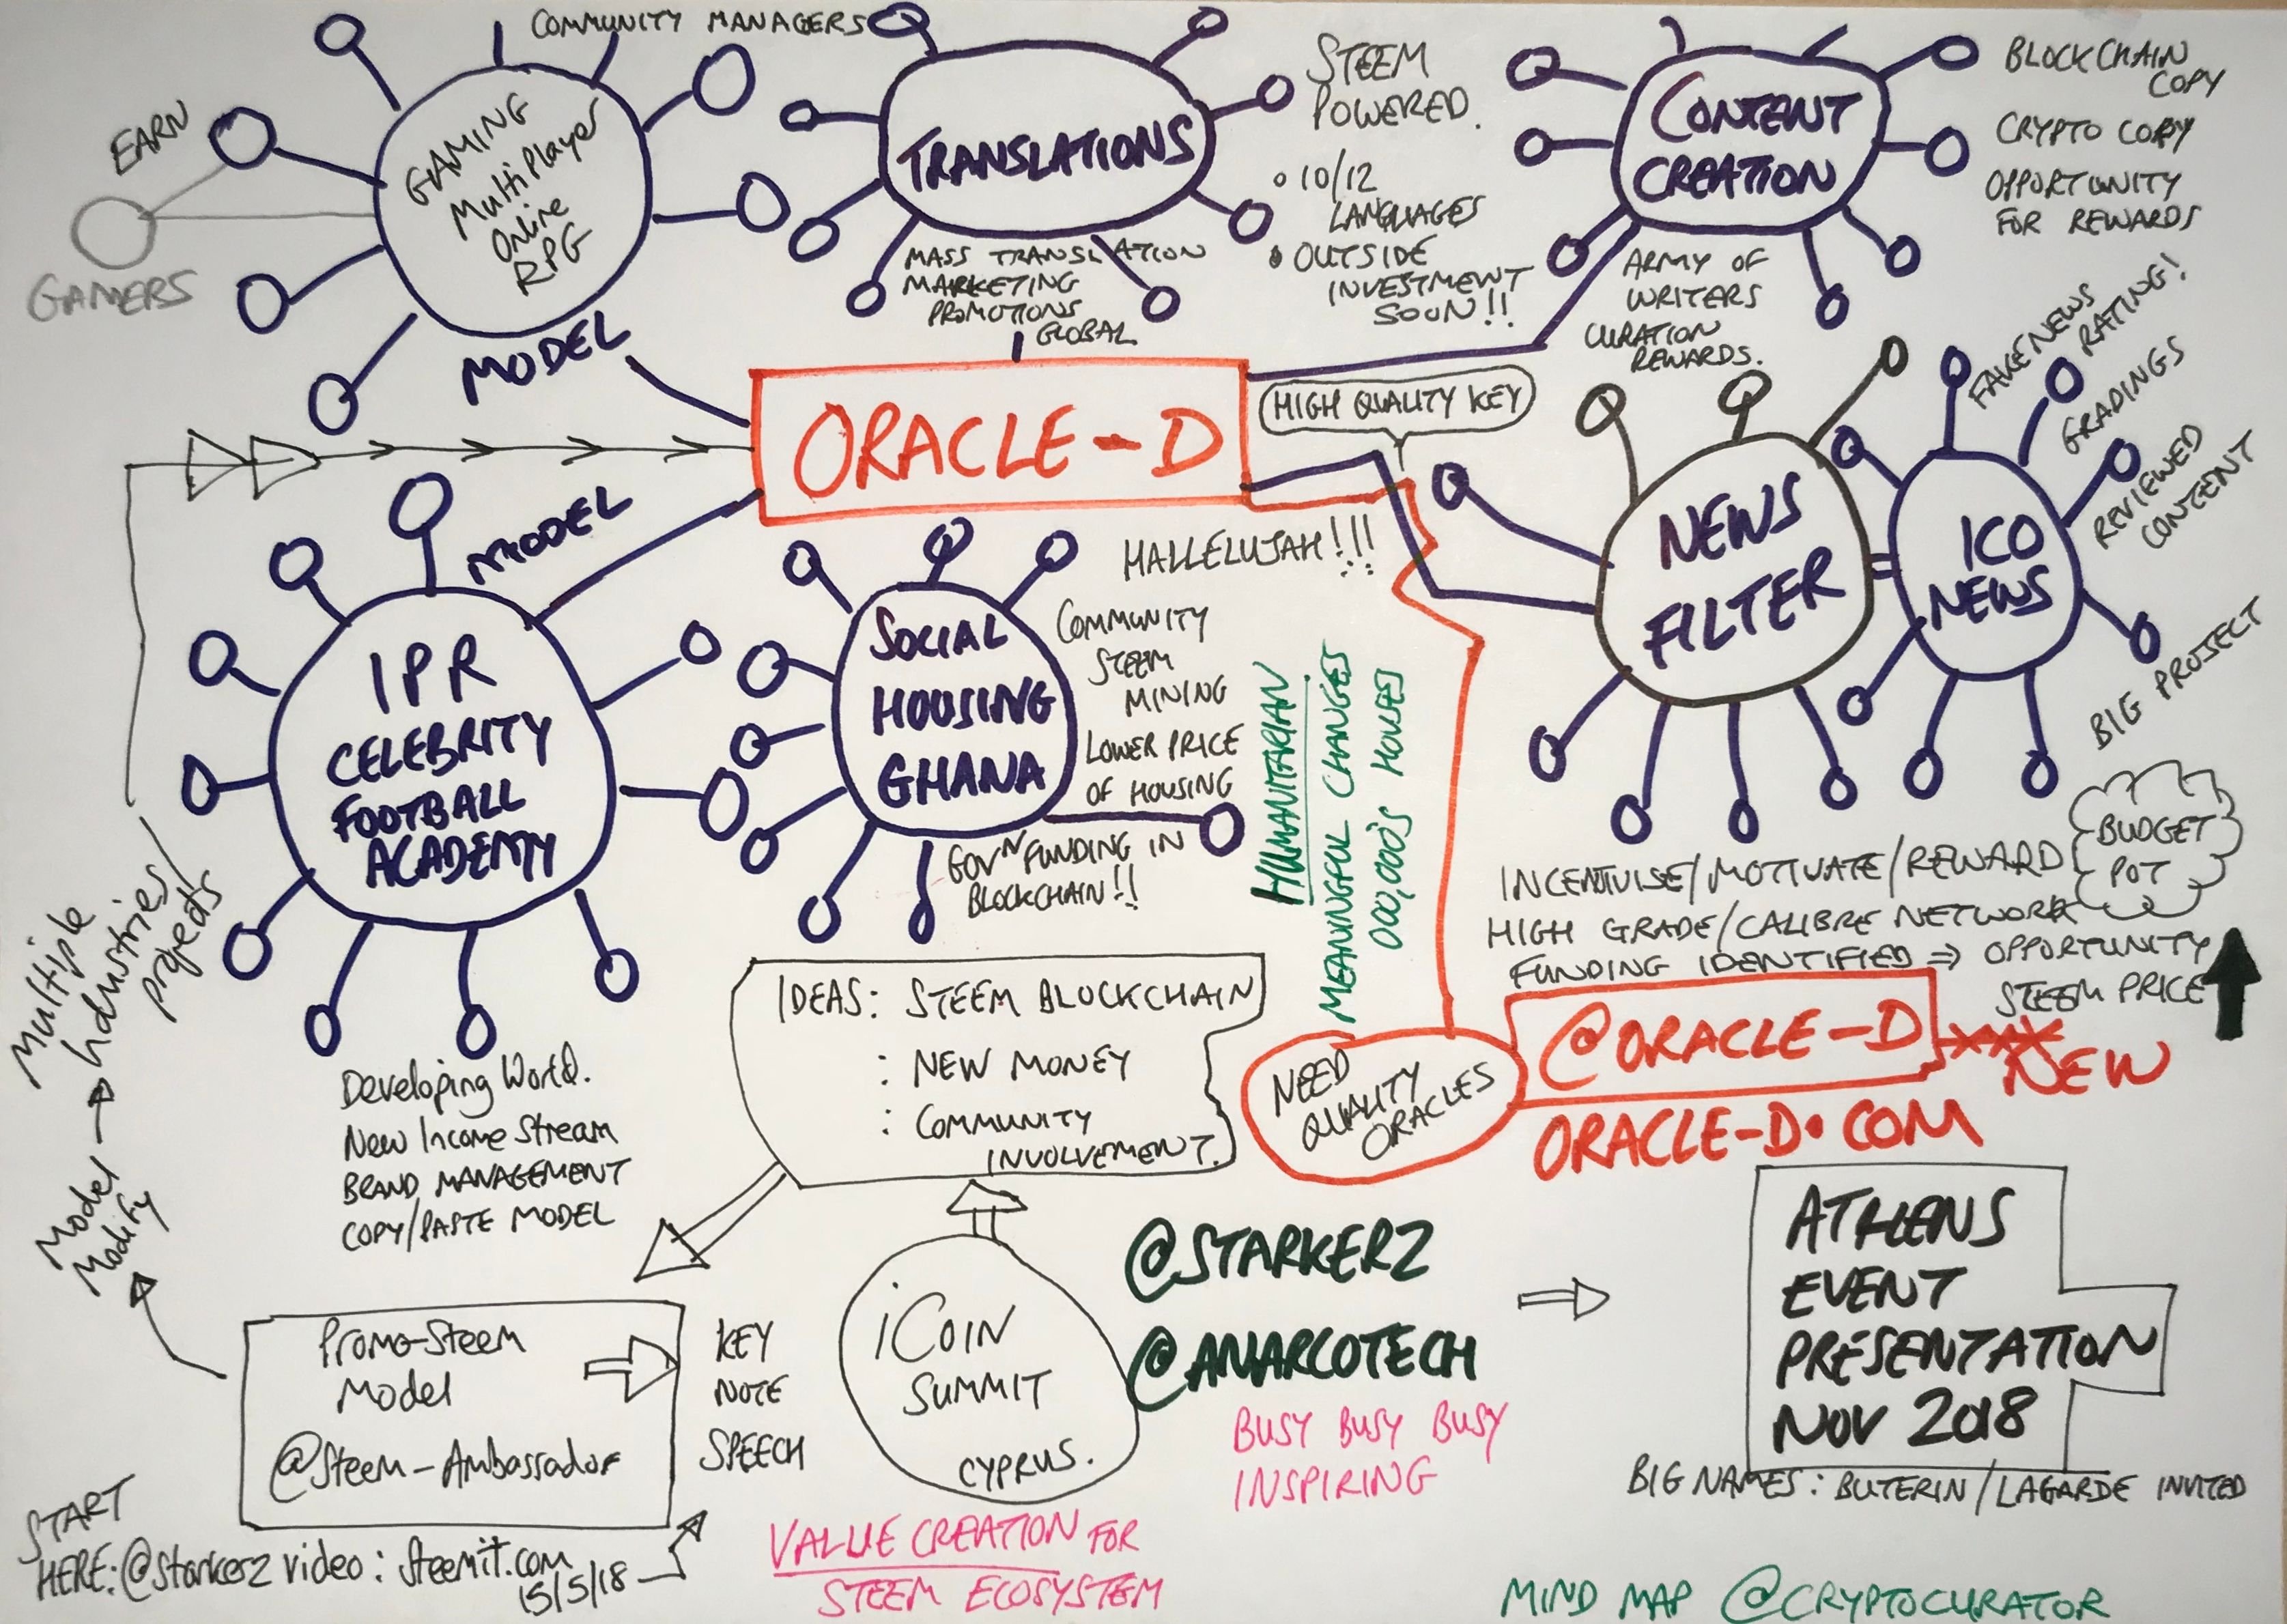 COMMUNITY MANAGERS
EARN
GAMERS
GAMING
MultiPlayer
Online
RPG
MODEL
TRANSLATIONS
STEEM
POWERED.
10/12
LANGUAGES
OUTSIDE
INVESTMENT
SOON!!
MASS TRANSLATION
MARKETING
PROMOTIONS
GLOBAL
CONTENT
CREATION
BLOCKCHAIN
COPY
CRYPTO COPY
OPPORTUNITY
FOR REWARDS
ARMY OF
WRITERS
CURATION
REWARDS.
ORACLE-D
HIGH QUALITY KEY
NEWS
FILTER
ICO
NEWS
FAKE NEWS
RATING!
GRADINGS
REVIEWED
CONTENT
BIG PROJECT
MODEL
IPR
CELEBRITY
FOOTBALL
ACADEMY
SOCIAL
HOUSING
GHANA
HALLELUJAH!!!
COMMUNITY
STEEM
MINING
LOWER PRICE
OF HOUSING
GOVN FUNDING IN
BLOCKCHAIN!!
HUMANITARIAN
MEANINGFUL CHANGES
000,000's HOUSES
BUDGET
POT
INCENTIVISE/MOTIVATE/REWARD
HIGH GRADE/CALIBRE NETWORK
FUNDING IDENTIFIED ⇒ OPPORTUNITY
STEEM PRICE
Multiple
Industries/
projects
Model
Modify
Developing World.
New Income Stream
BRAND MANAGEMENT
COPY/PASTE MODEL
IDEAS: STEEM BLOCKCHAIN
: NEW MONEY
: COMMUNITY
INVOLVEMENT.
NEED
QUALITY
ORACLES
@ORACLE-D
NEW
ORACLE-D.COM
Promo-Steem
Model
@Steem-Ambassador
KEY
NOTE
SPEECH
iCOIN
SUMMIT
CYPRUS.
@STARKERZ
@ANARCOTECH
BUSY BUSY BUSY
INSPIRING
ATHENS
EVENT
PRESENTATION
NOV 2018
BIG NAMES: BUTERIN/LAGARDE INVITED
START
HERE: @starkerz video: steemit.com
15/5/18
VALUE CREATION FOR
STEEM ECOSYSTEM
MIND MAP @CRYPTOCURATOR